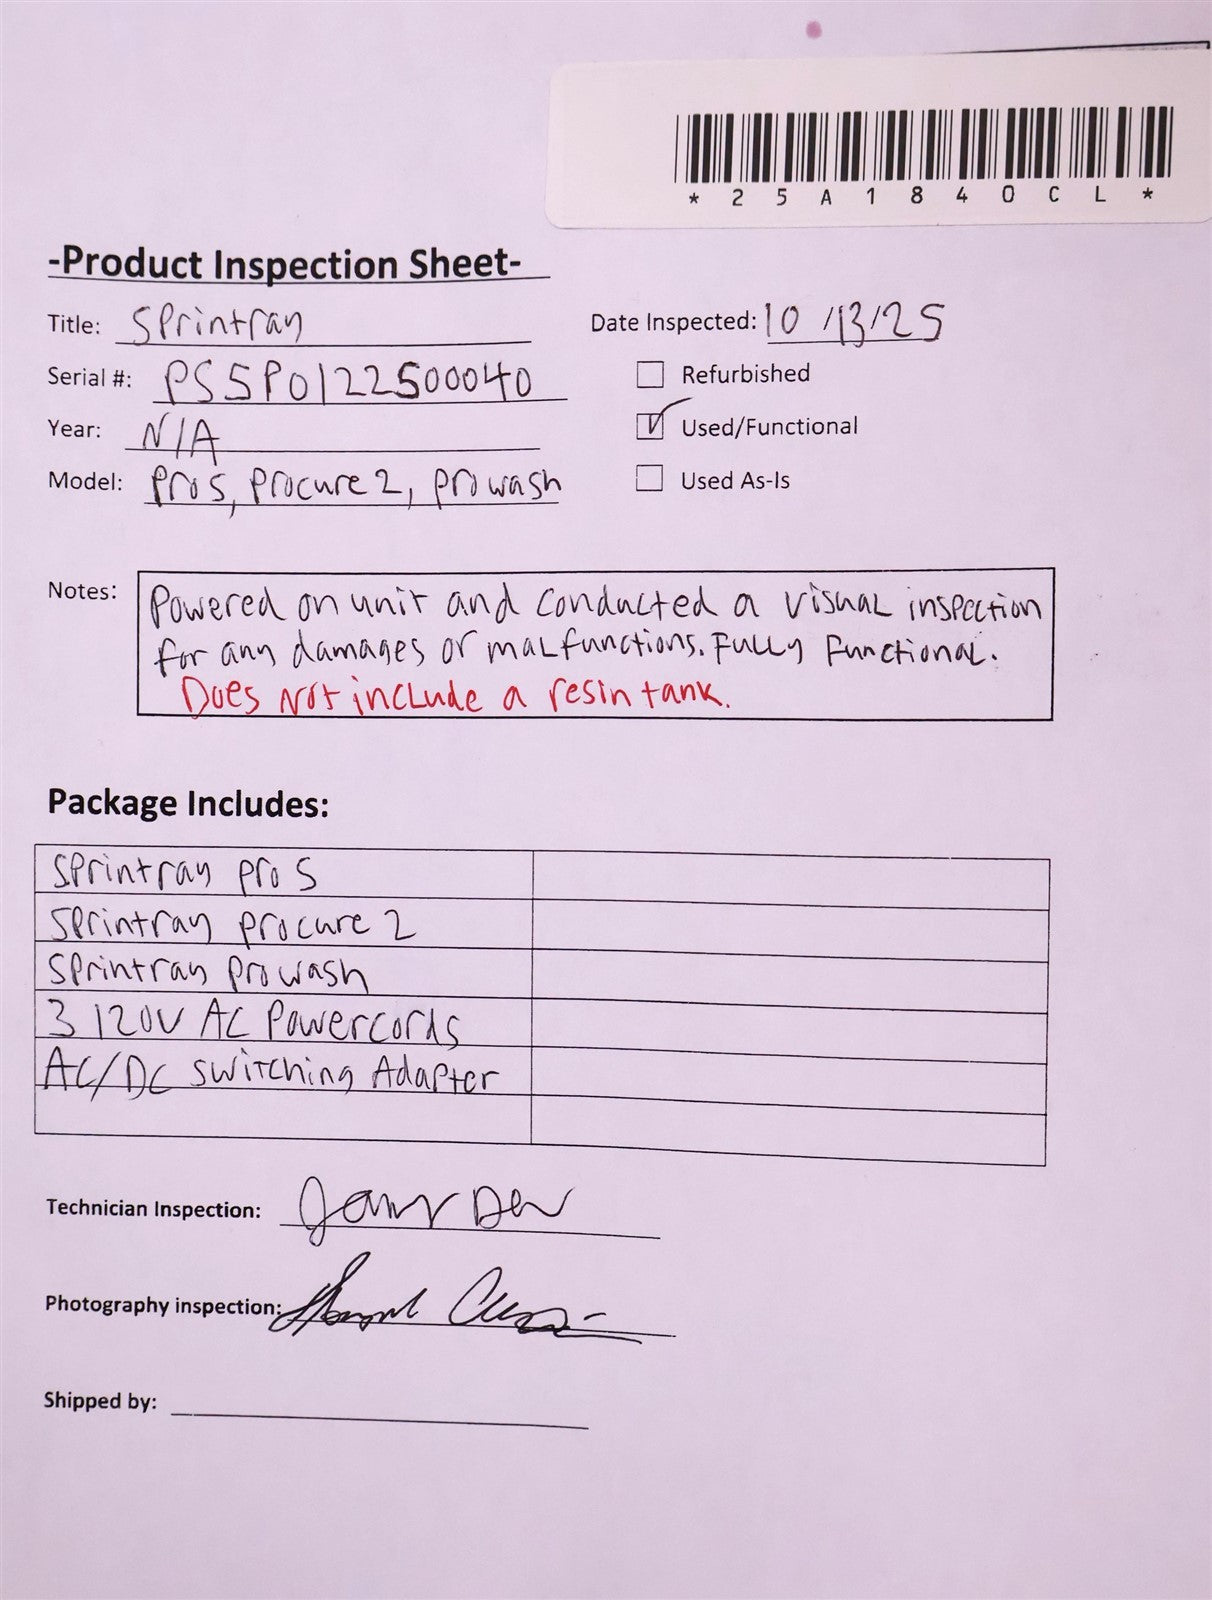 *25A1840CL*
-Product Inspection Sheet-
Title: Sprintray
Date Inspected: 10/13/25
Serial #: PS5P0122500040
Refurbished
Year: N/A
Used/Functional
Model: Pro S, Procure 2, Pro wash
Used As-Is
Notes: Powered on unit and conducted a visual inspection
for any damages or malfunctions. Fully Functional.
Does Not include a resin tank.
Package Includes:
Sprintray pro S
Sprintray procure 2
Sprintray pro wash
3 120V AC Powercords
AC/DC switching Adapter
Technician Inspection:
Photography inspection:
Shipped by: